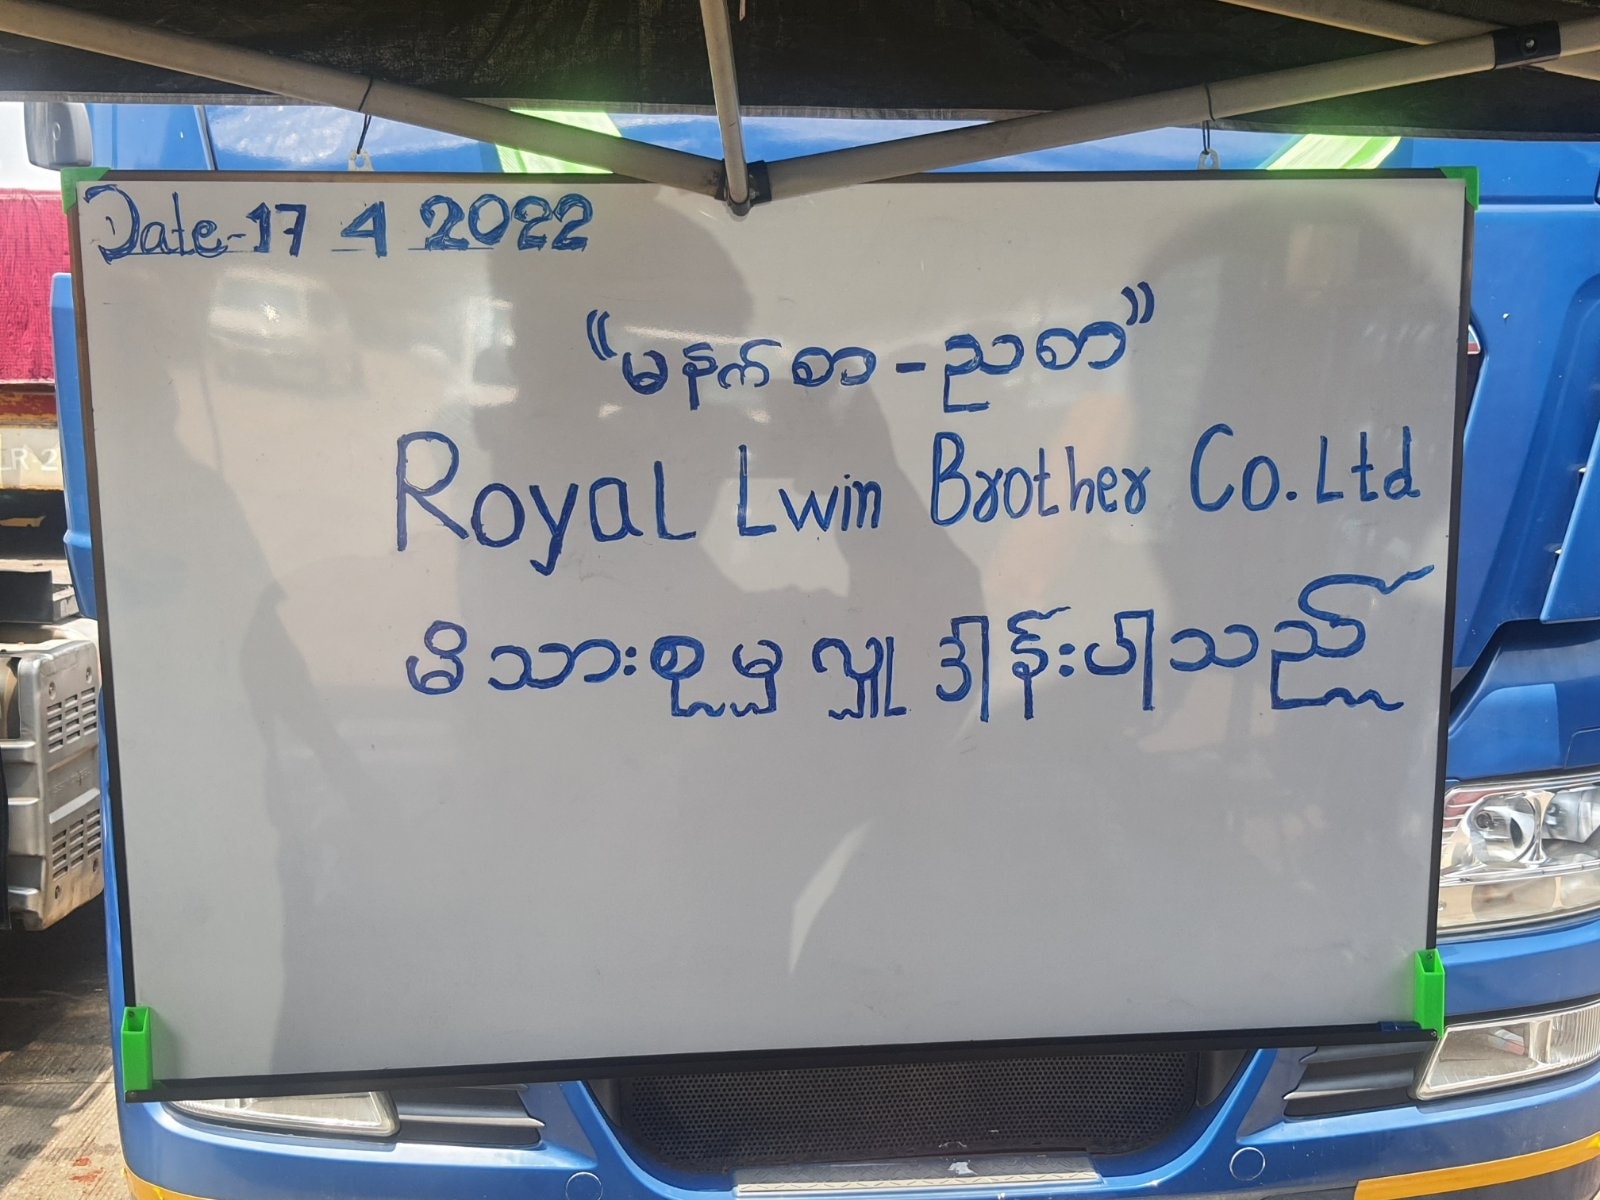 Date-17 4 2022
"မနက်စာ-ညစာ"
Royal Lwin Brother Co.Ltd
မိသားစုမှ လှူဒါန်းပါသည်